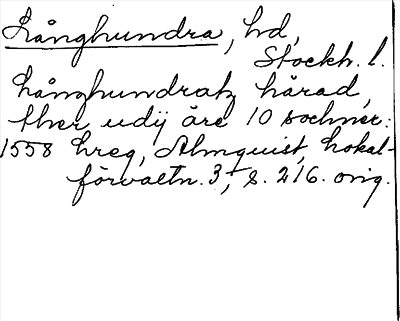 Långhundra, hd,
Stockh. l.
Långhundratz härad,
ther udij äre 10 sochner:
1558 hreg, Almquist, Lokal-
förvaltn. 3, s. 216. orig.